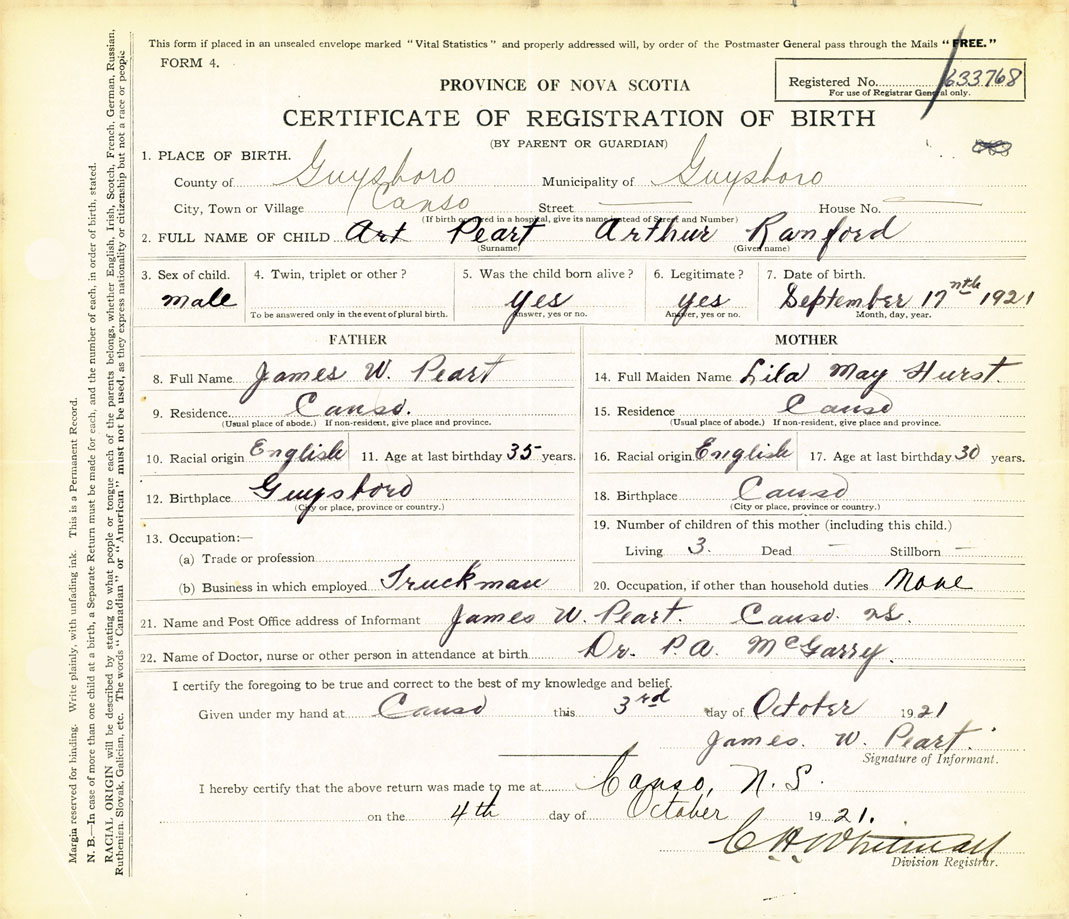 This form if placed in an unsealed envelope marked "Vital Statistics" and properly addressed will, by order of the Postmaster General pass through the Mails "FREE."
FORM 4.
Registered No. 633768
For use of Registrar General only.
PROVINCE OF NOVA SCOTIA
CERTIFICATE OF REGISTRATION OF BIRTH
(BY PARENT OR GUARDIAN)
1. PLACE OF BIRTH.
County of Guysboro Municipality of Guysboro
City, Town or Village Canso Street — House No. —
(If birth occurred in a hospital, give its name instead of Street and Number)
2. FULL NAME OF CHILD Art Peart Arthur Ranford
(Surname) (Given name)
3. Sex of child. 4. Twin, triplet or other? 5. Was the child born alive? 6. Legitimate? 7. Date of birth.
male yes yes September 17nth 1921
To be answered only in the event of plural birth. Answer, yes or no. Answer, yes or no. Month, day, year.
FATHER MOTHER
8. Full Name James W. Peart 14. Full Maiden Name Lila May Hurst.
9. Residence Canso. 15. Residence Canso
(Usual place of abode.) If non-resident, give place and province. (Usual place of abode.) If non-resident, give place and province.
10. Racial origin English 11. Age at last birthday 35 years. 16. Racial origin English 17. Age at last birthday 30 years.
12. Birthplace Guysboro 18. Birthplace Canso
(City or place, province or country.) (City or place, province or country.)
13. Occupation:— 19. Number of children of this mother (including this child.)
(a) Trade or profession Living 3. Dead — Stillborn —
(b) Business in which employed Truckman 20. Occupation, if other than household duties None
21. Name and Post Office address of Informant James W. Peart. Canso NS.
22. Name of Doctor, nurse or other person in attendance at birth Dr. P.A. McGarry.
I certify the foregoing to be true and correct to the best of my knowledge and belief.
Given under my hand at Canso this 3rd day of October 1921
James. W. Peart.
Signature of Informant.
I hereby certify that the above return was made to me at Canso, N.S.
on the 4th day of October 1921.
C H Whitman
Division Registrar.
Margin reserved for binding. Write plainly, with unfading ink. This is a Permanent Record.
N. B.—In case of more than one child at a birth, a Separate Return must be made for each, and the number of each, in order of birth, stated.
RACIAL ORIGIN will be described by stating to what people or tongue each of the parents belongs, whether English, Irish, Scotch, French, German, Russian,
Ruthenian, Slovak, Galician, etc. The words "Canadian" or "American" must not be used, as they express nationality or citizenship but not a race or people.